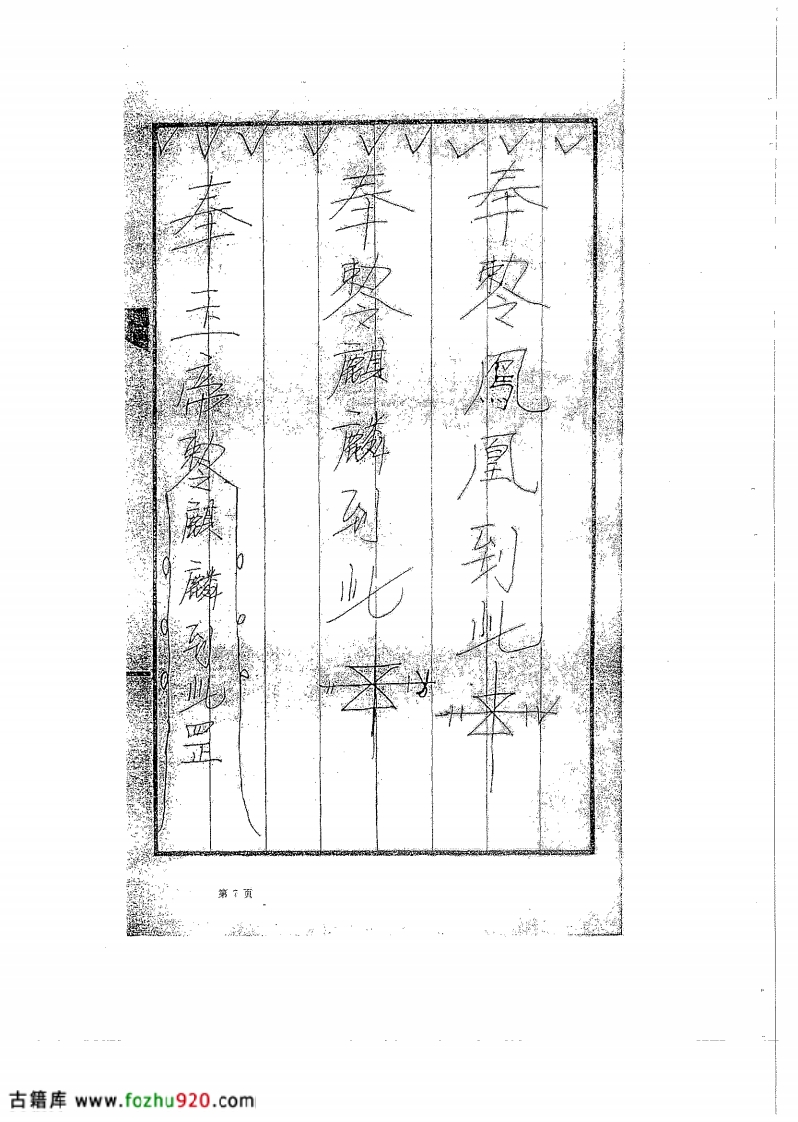 奉敕令鳳凰到此
奉敕令麒麟到此
奉玉帝敕令麒麟到此罡
第 7 页
古籍库 www.fozhu920.com